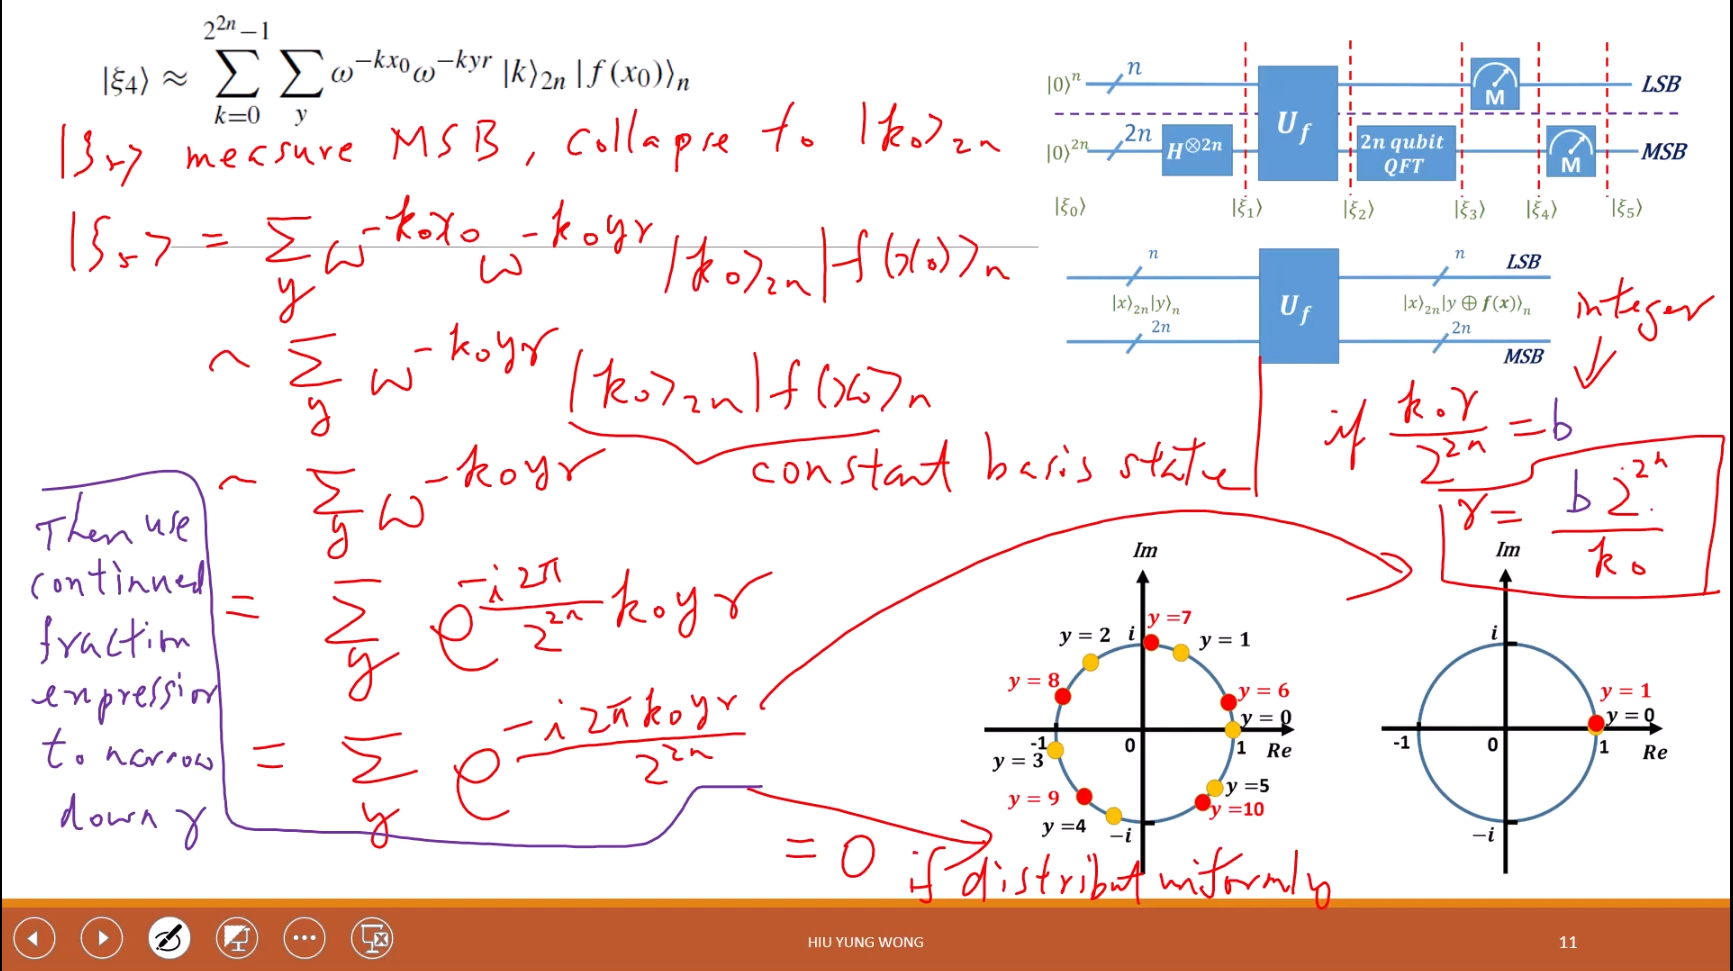 |ξ₄⟩ ≈ ∑_{k=0}^{2^{2n}−1} ∑_y ω^{−kx₀} ω^{−kyr} |k⟩₂ₙ |f(x₀)⟩ₙ
|ξ₅⟩ measure MSB, collapse to |k₀⟩₂ₙ
|ξ₅⟩ = ∑_y ω^{−k₀x₀} ω^{−k₀yr} |k₀⟩₂ₙ |f(x₀)⟩ₙ
~ ∑_y ω^{−k₀yr} |k₀⟩₂ₙ |f(x₀)⟩ₙ
constant basis state
~ ∑_y ω^{−k₀yr}
= ∑_y e^{−i 2π/2^{2n} k₀yr}
= ∑_y e^{−i2πk₀yr/2^{2n}}
= 0 if distribut uniformly
Then use
continued
fraction
expression
to narrow
down r
|0⟩ⁿ n U_f M LSB
|0⟩²ⁿ 2n H^{⊗2n} 2n qubit QFT M MSB
|ξ₀⟩ |ξ₁⟩ |ξ₂⟩ |ξ₃⟩ |ξ₄⟩ |ξ₅⟩
n U_f n LSB
|x⟩₂ₙ|y⟩ₙ |x⟩₂ₙ|y ⊕ f(x)⟩ₙ
2n 2n MSB
integer
if k₀r/2^{2n} = b
r = b 2^{2n}/k₀
Im
y = 2 i y =7 y = 1
y = 8 y = 6
y = 0
-1 0 1 Re
y = 3
y = 9 y =5
y =4 −i y =10
Im
i
y = 1
y = 0
-1 0 1 Re
−i
HIU YUNG WONG
11